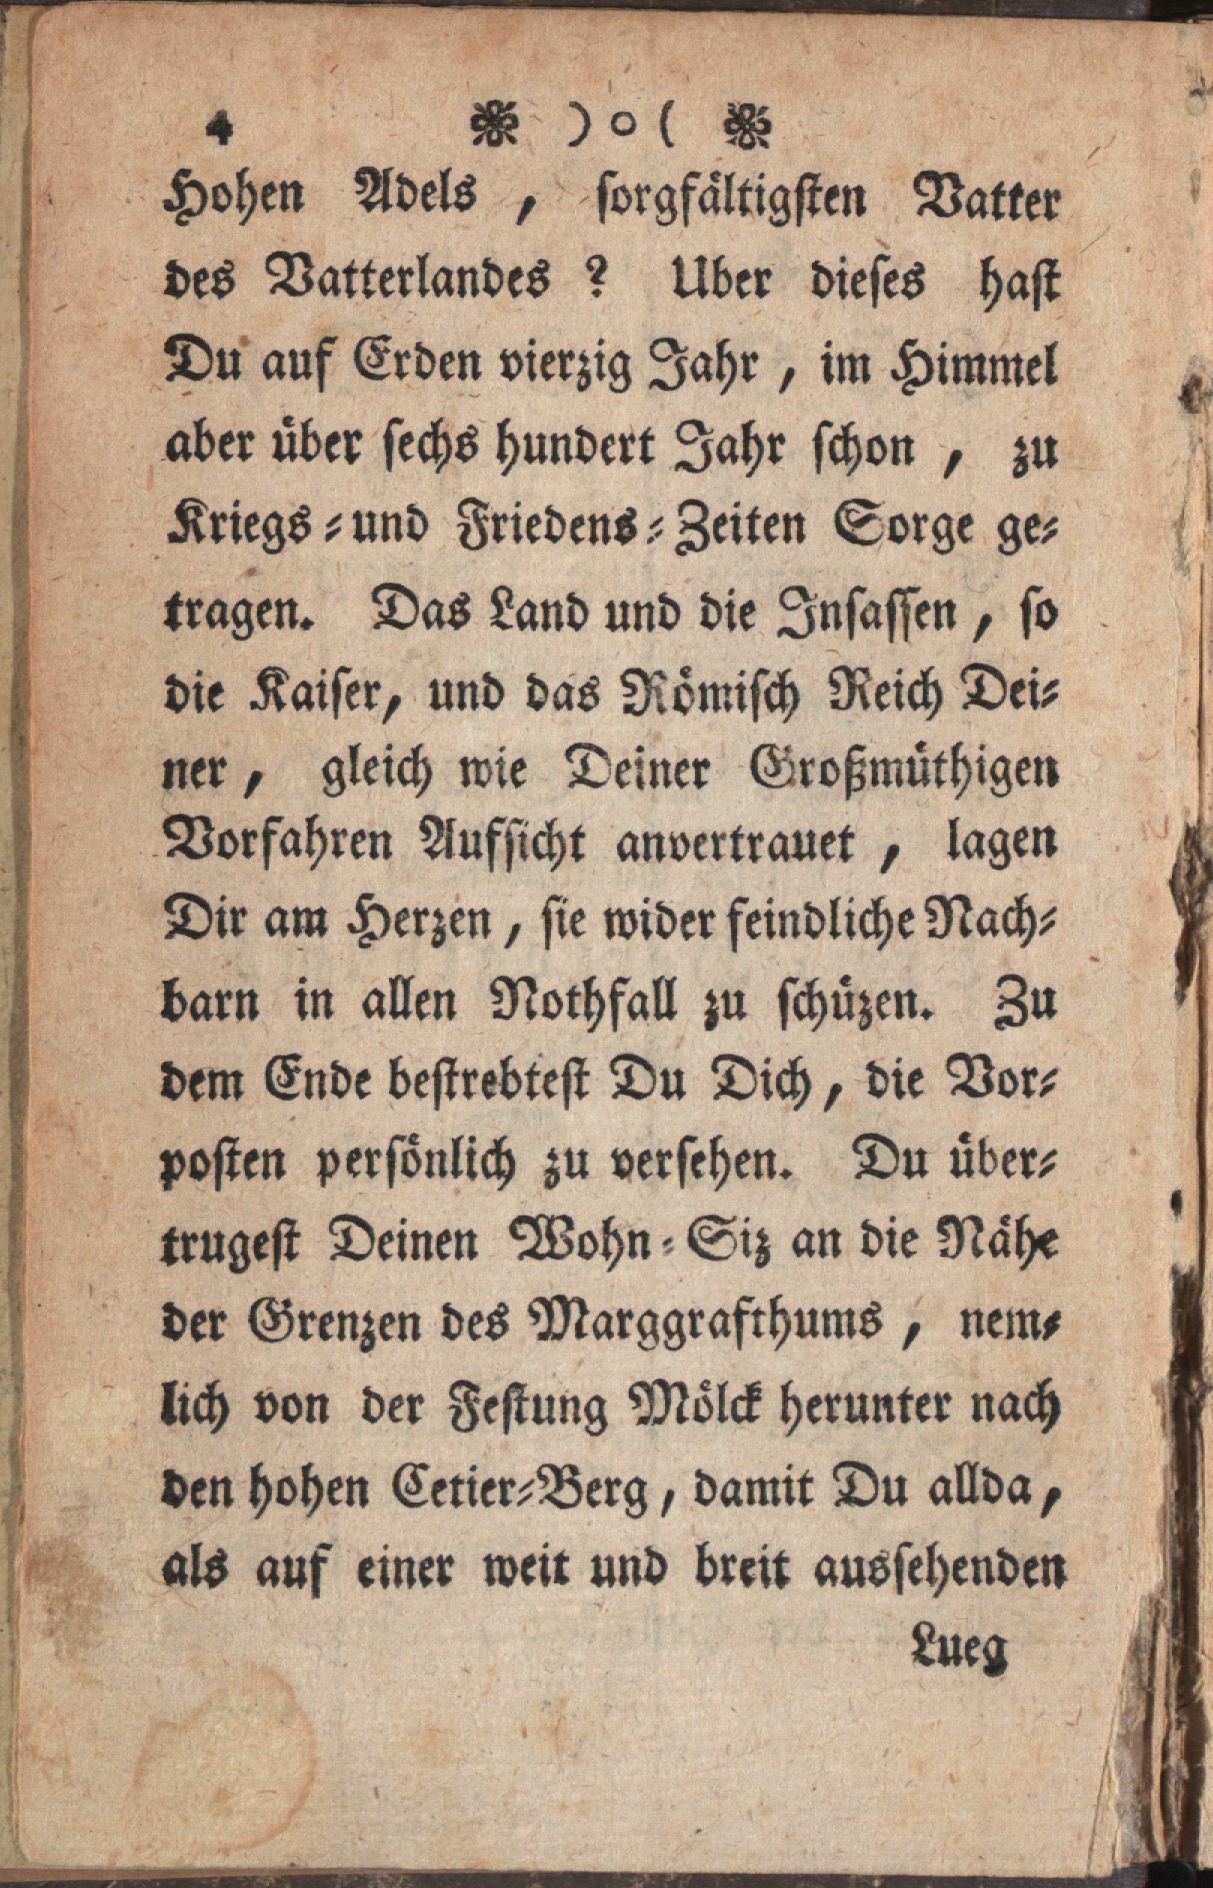 4 ❀ ) o ( ❀
Hohen Adels , sorgfältigsten Vatter
des Vatterlandes ? Uber dieses hast
Du auf Erden vierzig Jahr , im Himmel
aber über sechs hundert Jahr schon , zu
Kriegs-und Friedens-Zeiten Sorge ge-
tragen. Das Land und die Insassen , so
die Kaiser, und das Römisch Reich Dei-
ner , gleich wie Deiner Großmüthigen
Vorfahren Aufsicht anvertrauet , lagen
Dir am Herzen , sie wider feindliche Nach-
barn in allen Nothfall zu schüzen. Zu
dem Ende bestrebtest Du Dich, die Vor-
posten persönlich zu versehen. Du über-
trugest Deinen Wohn-Siz an die Nähe
der Grenzen des Marggrafthums , nem-
lich von der Festung Mölck herunter nach
den hohen Cetier-Berg, damit Du allda,
als auf einer weit und breit aussehenden
Lueg